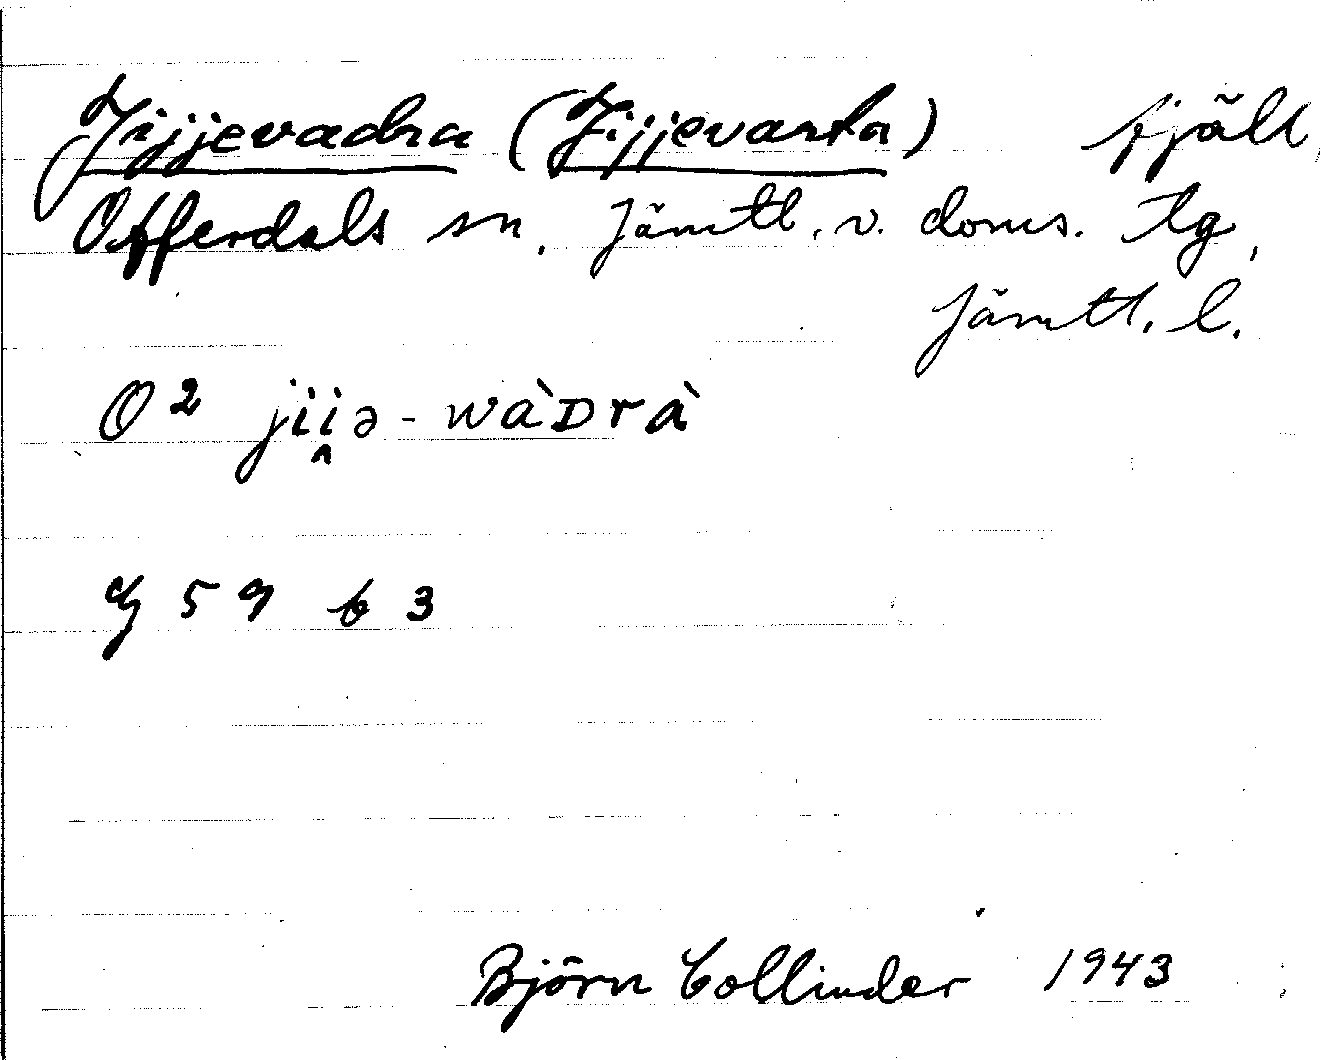 Jijjevadra (Jijjevarta) fjäll,
Offerdals sn, Jämtl. v. doms. tg,
Jämtl. l.
O² jii̭ə-wàDrà
G 59 b 3
Björn Collinder 1943